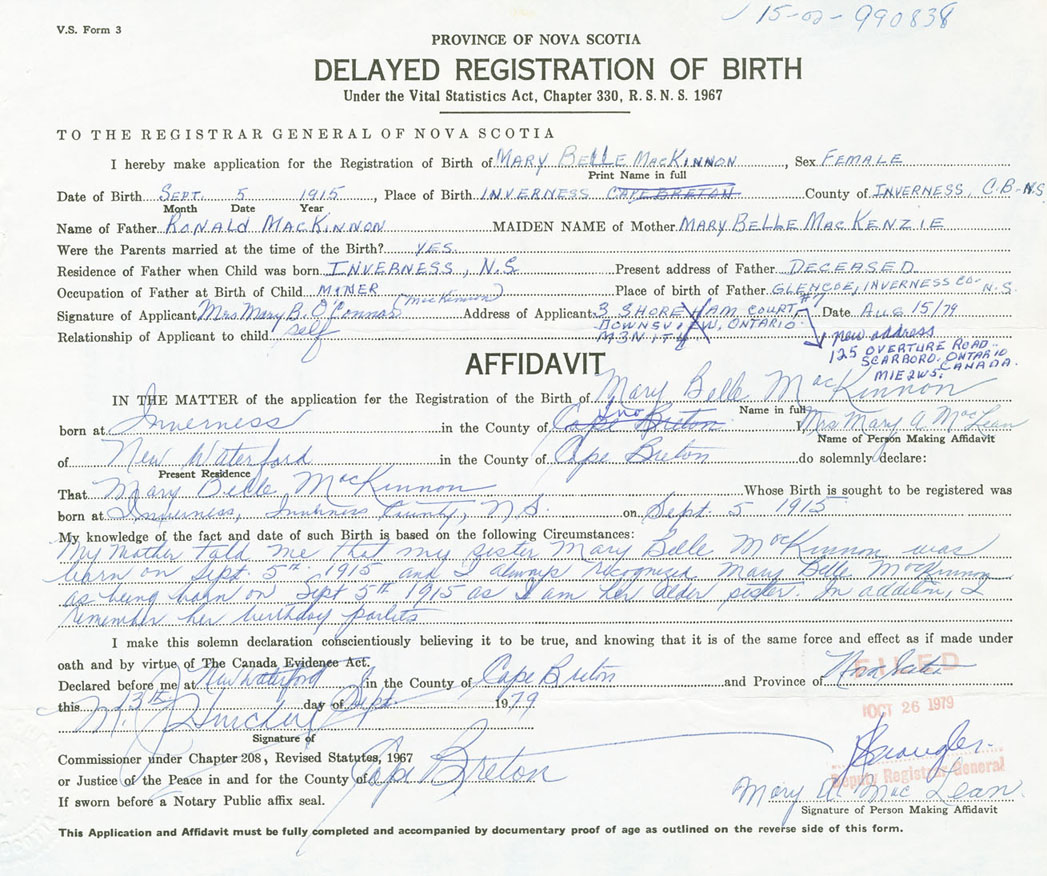 15-02-990838
V.S. Form 3
PROVINCE OF NOVA SCOTIA
DELAYED REGISTRATION OF BIRTH
Under the Vital Statistics Act, Chapter 330, R.S.N.S. 1967
TO THE REGISTRAR GENERAL OF NOVA SCOTIA
I hereby make application for the Registration of Birth of MARY BELLE MACKINNON, Sex FEMALE
Print Name in full
Date of Birth SEPT. 5 1915, Place of Birth INVERNESS CAPE BRETON County of INVERNESS, C.B-N.S
Month Date Year
Name of Father RONALD MACKINNON MAIDEN NAME of Mother MARY BELLE MACKENZIE
Were the Parents married at the time of the Birth? YES
Residence of Father when Child was born INVERNESS, N.S. Present address of Father DECEASED
Occupation of Father at Birth of Child MINER Place of birth of Father GLENCOE, INVERNESS CO- N.S.
(MacKinnon)
Signature of Applicant Mrs Mary B. O'Connor Address of Applicant 3 SHOREHAM COURT #7 Date AUG 15/79
DOWNSVIEW, ONTARIO
Relationship of Applicant to child self
new address
125 OVERTURE ROAD
SCARBORO, ONTARIO
CANADA.
M1E2W5
AFFIDAVIT
IN THE MATTER of the application for the Registration of the Birth of Mary Belle MacKinnon
Name in full
born at Inverness in the County of Cape Breton I Mrs Mary A. MacLean
Name of Person Making Affidavit
of New Waterford in the County of Cape Breton do solemnly declare:
Present Residence
That Mary Belle MacKinnon Whose Birth is sought to be registered was
born at Inverness, Inverness County, N.S. on Sept. 5 1915
My knowledge of the fact and date of such Birth is based on the following Circumstances:
My mother told me that my sister Mary Belle MacKinnon was
born on Sept. 5th 1915 and I always recognized Mary Belle MacKinnon
as being born on Sept 5th 1915 as I am her older sister. In addition, I
remember her birthday parties
I make this solemn declaration conscientiously believing it to be true, and knowing that it is of the same force and effect as if made under
oath and by virtue of The Canada Evidence Act.
FILED
Declared before me at New Waterford in the County of Cape Breton and Province of Nova Scotia
this 13th day of Sept. 1979
OCT 26 1979
Signature of
Commissioner under Chapter 208, Revised Statutes, 1967
or Justice of the Peace in and for the County of Cape Breton
Deputy Registrar General
If sworn before a Notary Public affix seal.
Mary A. MacLean
Signature of Person Making Affidavit
This Application and Affidavit must be fully completed and accompanied by documentary proof of age as outlined on the reverse side of this form.